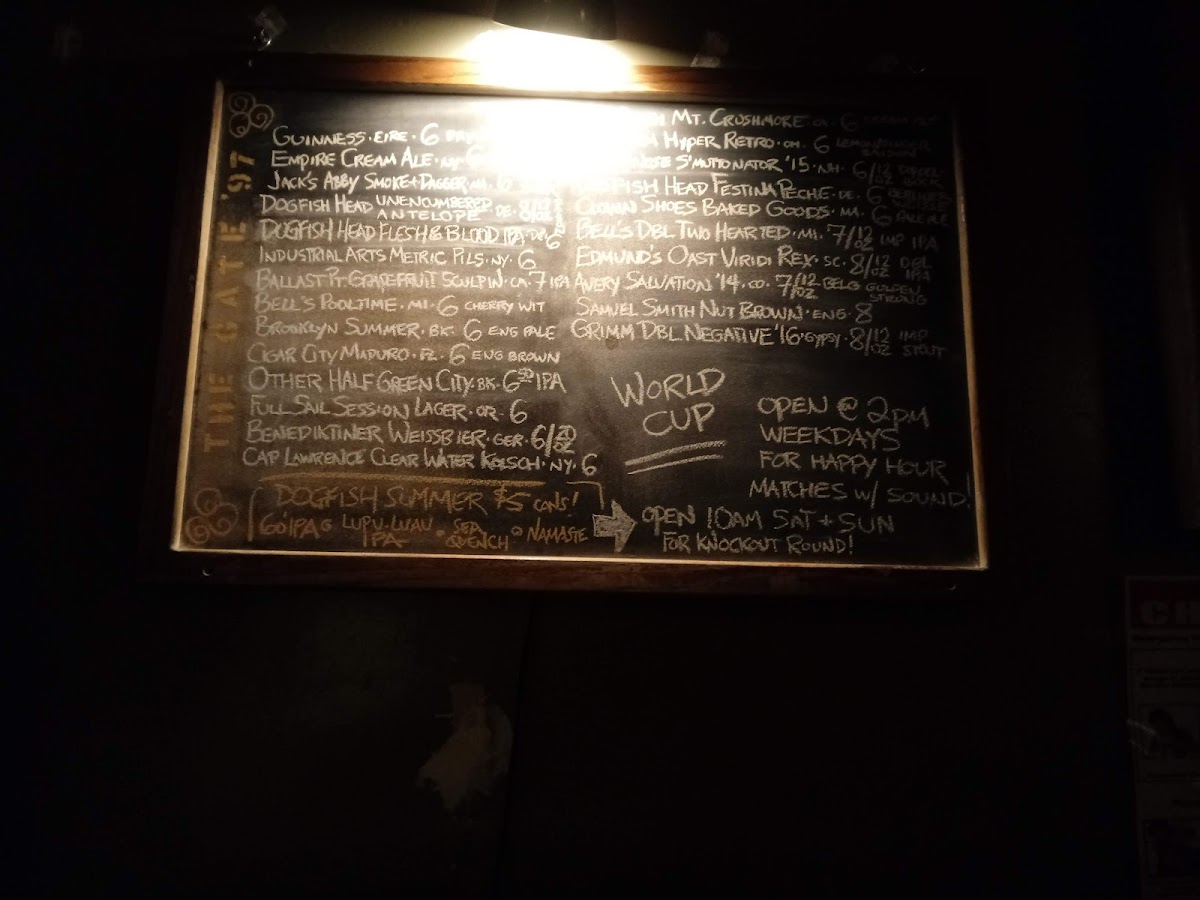 THE GATE '97
GUINNESS · EIRE · 6
EMPIRE CREAM ALE · NY · 6
JACK'S ABBY SMOKE + DAGGER · MA · 6
DOGFISH HEAD UNENCUMBERED ANTELOPE · DE · 8/12 OZ
DOGFISH HEAD FLESH & BLOOD IPA · DE · 6
INDUSTRIAL ARTS METRIC PILS · NY · 6
BALLAST PT. GRAPEFRUIT SCULPIN · CA · 7 IPA
BELL'S POOLTIME · MI · 6 CHERRY WIT
BROOKLYN SUMMER · BK · 6 ENG PALE
CIGAR CITY MADURO · FL · 6 ENG BROWN
OTHER HALF GREEN CITY · BK · 6 50 IPA
FULL SAIL SESSION LAGER · OR · 6
BENEDIKTINER WEISSBIER · GER · 6/20 OZ
CAP LAWRENCE CLEAR WATER KOLSCH · NY · 6
DOGFISH SUMMER $5 CANS!
60' IPA LUPU-LUAU IPA · SEA QUENCH · NAMASTE
MT. CRUSHMORE · 6 CREAM ALE
HYPER RETRO · OH · 6
S'MUTTONATOR '15 · NH · 6/12 OZ DOPPEL BOCK
DOGFISH HEAD FESTINA PECHE · DE · 6
CLOWN SHOES BAKED GOODS · MA · 6 PALE ALE
BELL'S DBL TWO HEARTED · MI · 7/12 OZ IMP IPA
EDMUND'S OAST VIRIDI REX · SC · 8/12 OZ DBL IPA
AVERY SALVATION '14 · CO · 7/12 OZ BELG GOLDEN STRONG
SAMUEL SMITH NUT BROWN · ENG · 8
GRIMM DBL NEGATIVE '16 · GYPSY · 8/12 OZ IMP STOUT
WORLD
CUP
OPEN @ 2PM
WEEKDAYS
FOR HAPPY HOUR
MATCHES W/ SOUND!
OPEN 10AM SAT + SUN
FOR KNOCKOUT ROUND!